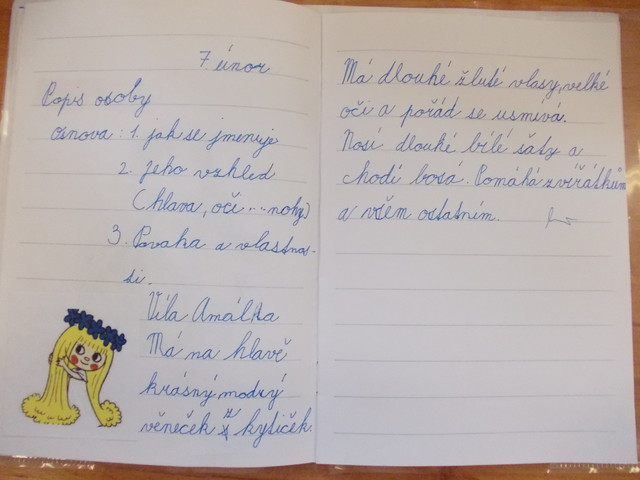 7. únor
Popis osoby
osnova: 1. jak se jmenuje
2. jeho vzhled
(hlava, oči ... nohy)
3. Povaha a vlastnos-
ti.
Víla Amálka
Má na hlavě
krásný modrý
věneček z kytiček.
Má dlouhé žluté vlasy, velké
oči a pořád se usmívá.
Nosí dlouhé bílé šaty a
chodí bosá. Pomáhá zvířátkům
a všem ostatním.